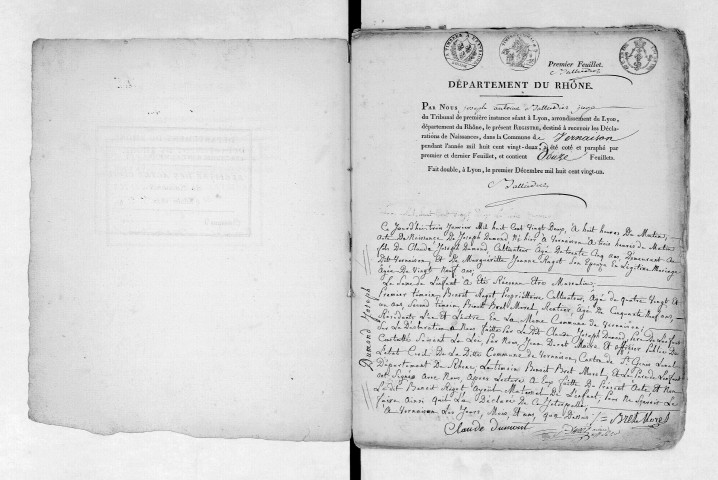 Premier Feuillet.
DÉPARTEMENT DU RHÔNE.
PAR NOUS, joseph antoine d'allier juge
du Tribunal de première instance séant à Lyon, arrondissement de Lyon,
département du Rhône, le présent REGISTRE, destiné à recevoir les Décla-
rations de Naissances, dans la Commune de Vernaison
pendant l'année mil huit cent vingt-deux, a été coté et paraphé par
premier et dernier Feuillet, et contient Douze Feuillets.
Fait double, à Lyon, le premier Décembre mil huit cent vingt-un.
Dumond Joseph
Ce Jourd'hui trois Janvier Mil huit Cent Vingt Deux, A huit heures Du Matin,
Acte De Naissance De Joseph Dumond Né hier A Vernaison A trois heures du Matin
fils De Claude Joseph Dumond Cultivateur Agé De trente Cinq ans Demeurant Au
Dit Vernaison, Et De Margueritte Jeanne Rigot Son Epouse En Légitime Mariage
Agée De Vingt Neuf ans,
Le Sexe De L'enfant A Eté Reconnu Etre Masculin,
Premier témoin, Benoit Rigot Propriétaire Cultivateur, Agé de Quatre Vingt Et
un ans, Second témoin, Benoit Bret Morel, Rentier, Agé De Cinquante Neuf ans,
Résidents L'un Et L'autre En La Même Commune De Vernaison,
Sur La Déclaration A Nous faitte Par Le Dit Claude Joseph Dumond, Père De L'enfant
Constatté Suivant La Loi, Par Nous, Jean Maire Et officier Public De
L'état Civil De La Ditte Commune De Vernaison, Canton De St Genis Laval
Département Du Rhône, Le témoin Benoit Bret Morel, Et Le Père De L'enfant
ont Signés Avec Nous, Après Lecture A Eux faitte Du Présent Acte Et Non
Le Dit Benoit Rigot Ayeul Maternel De L'enfant, Pour Ne Savoir Le
faire Ainsi qu'il L'a Déclaré De Ce Interpellé
A Vernaison Les Jour, Mois, Et an, que Dessus
Bret Morel
Claude dumont